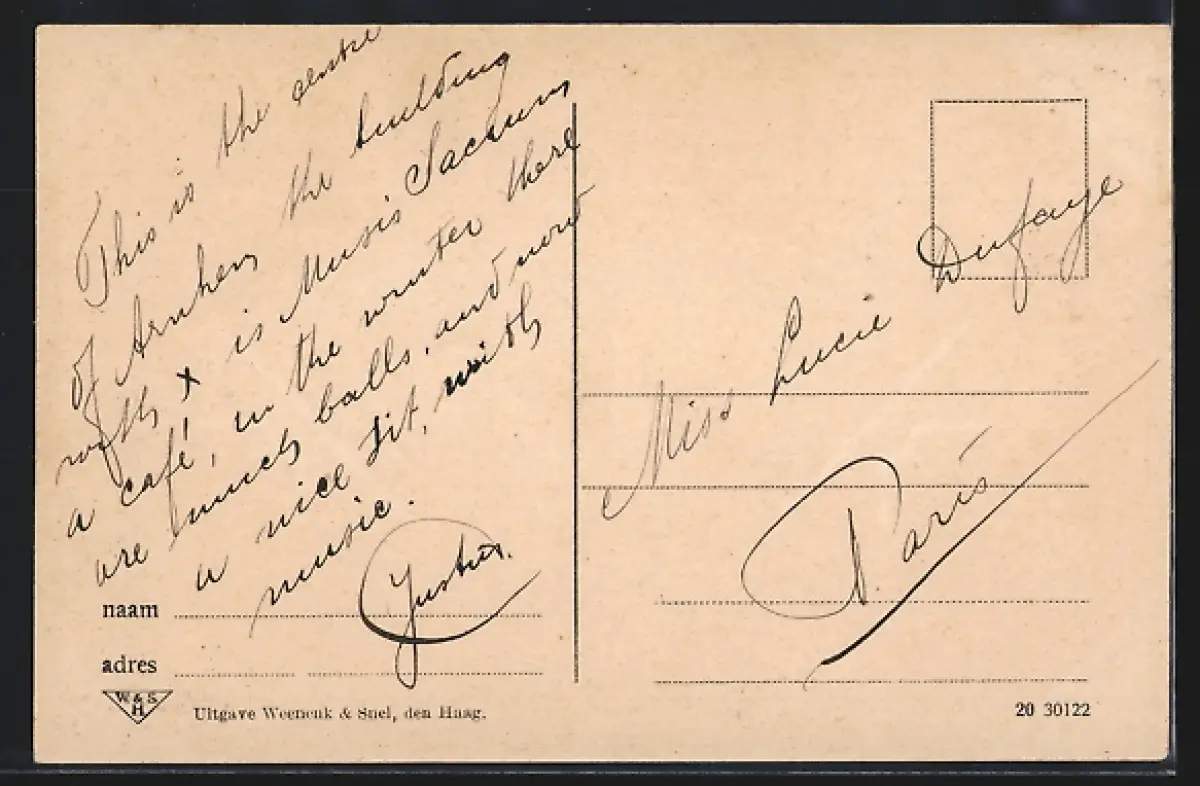 This is the centre
of Arnhem the building
with x is Musis Sacrum
a café, in the winter there
are much balls, and now
a nice sit, with
music.
Justus.
naam
adres
W & S
H
Uitgave Weenenk & Snel, den Haag.
Miss Lucie Dufaye
Paris
20 30122